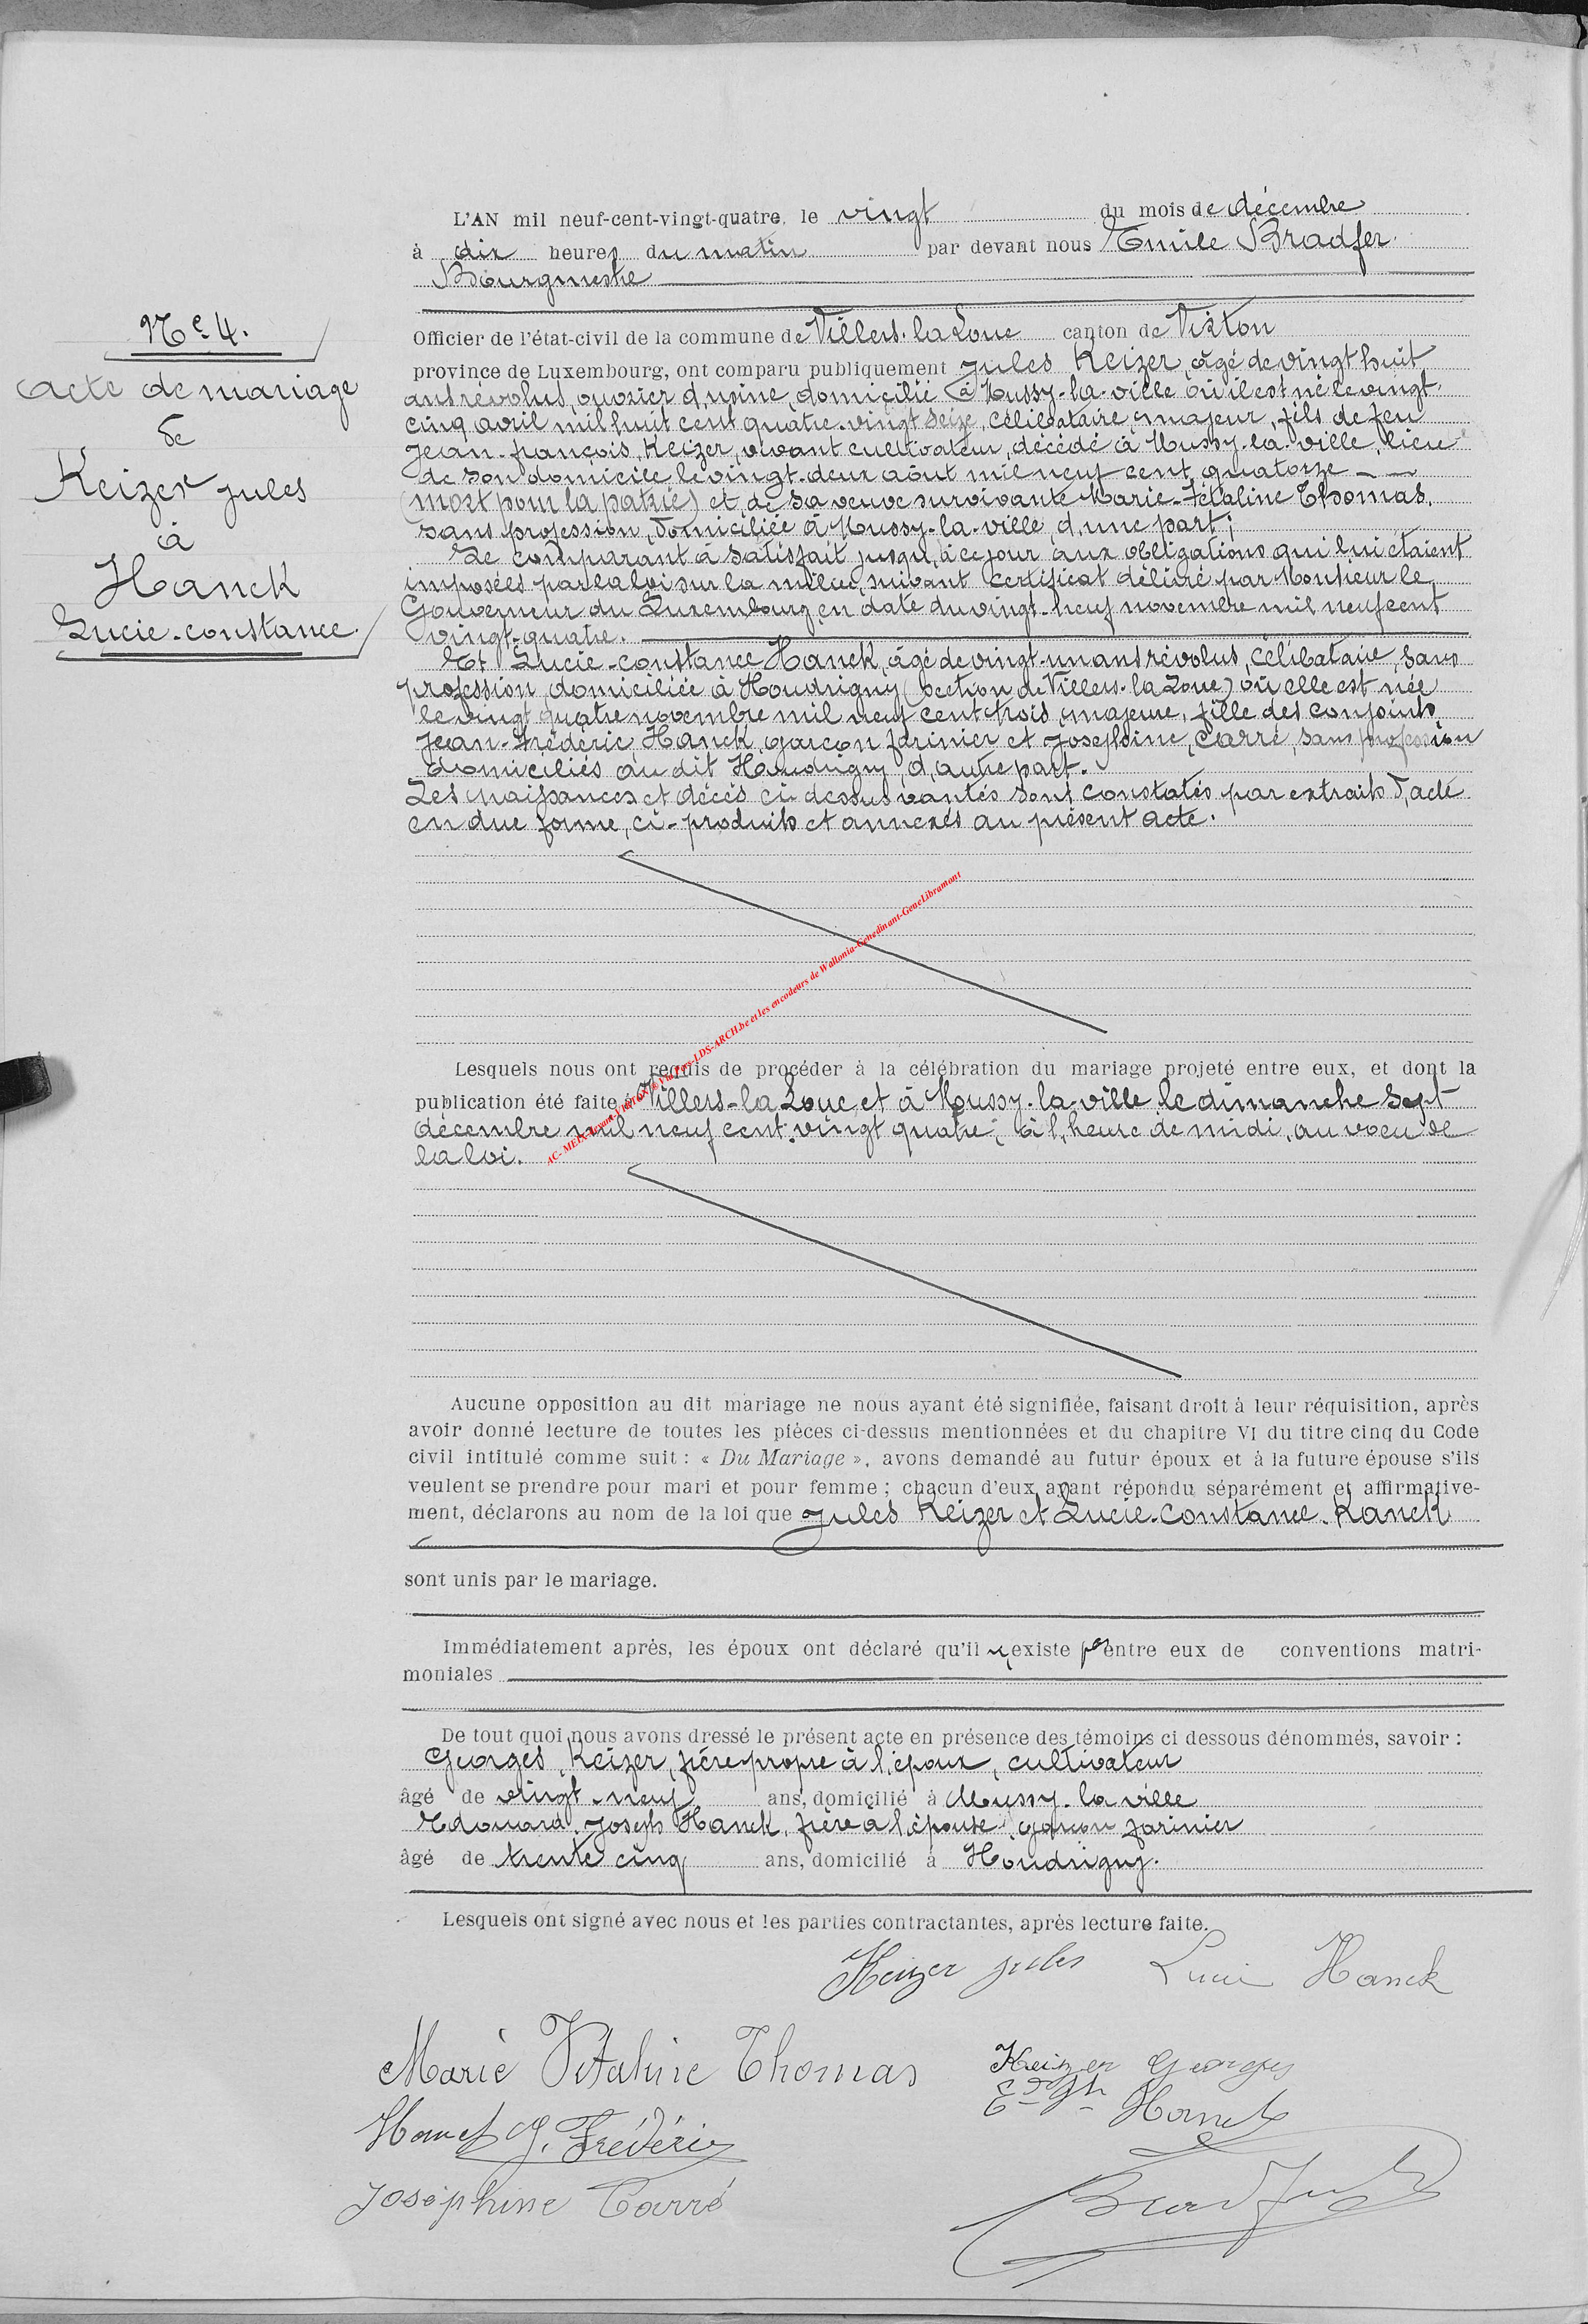 L'AN mil neuf-cent-vingt-quatre, le vingt du mois de décembre
à dix heures du matin par devant nous Emile Bradfer
Bourgmestre
Nº 4.
acte de mariage
de
Keizer Jules
à
Hanck
Lucie-constance.
Officier de l'état-civil de la commune de Villers-la Loue canton de Virton
province de Luxembourg, ont comparu publiquement Jules Keizer, âgé de vingt huit
ans révolus, ouvrier d'usine, domicilié à Mussy-la-ville où il est né le vingt
cinq avril mil huit cent quatre-vingt seize, célibataire, majeur, fils de feu
Jean-françois, Keizer, vivant cultivateur, décédé à Mussy-la-ville, lieu
de son domicile le vingt-deux août mil neuf cent quatorze
(mort pour la patrie) et de sa veuve survivante Marie-Vitaline Thomas,
sans profession, domiciliée à Mussy-la-ville, d'une part;
Le comparant à satisfait jusqu'à ce jour aux obligations qui lui étaient
imposées par la loi sur la milice, suivant certificat délivré par Monsieur le
Gouverneur du Luxembourg en date du vingt-neuf novembre mil neuf cent
vingt-quatre.
Et Lucie-constance Hanck, âgé de vingt-un ans révolus, célibataire, sans
profession domiciliée à Houdrigny (section de Villers-la Loue) où elle est née
le vingt quatre novembre mil neuf cent trois, majeure, fille des conjoints
Jean-Frédéric Hanck, garçon farinier et Joséphine, Carré, sans profession
domiciliés au dit Houdrigny, d'autre part.
Les naissances et décès ci-dessus vantés sont constatés par extraits d'acte
en due forme, ci-produits et annexés au présent acte.
AC- MEIX-devant-VIRTON © Via Pers-LDS-ARCH.be et les encodeurs de Wallonia-Genedinant-GeneLibramont
Lesquels nous ont requis de procéder à la célébration du mariage projeté entre eux, et dont la
publication été faite à Villers-la Loue et à Mussy-la-ville le dimanche sept
décembre mil neuf cent vingt quatre, à l'heure de midi, au voeu de
la loi.
Aucune opposition au dit mariage ne nous ayant été signifiée, faisant droit à leur réquisition, après
avoir donné lecture de toutes les pièces ci-dessus mentionnées et du chapitre VI du titre cinq du Code
civil intitulé comme suit : « Du Mariage », avons demandé au futur époux et à la future épouse s'ils
veulent se prendre pour mari et pour femme ; chacun d'eux ayant répondu séparément et affirmative-
ment, déclarons au nom de la loi que Jules Keizer et Lucie-Constance-Hanck
sont unis par le mariage.
Immédiatement après, les époux ont déclaré qu'il n'existe pas entre eux de conventions matri-
moniales
De tout quoi nous avons dressé le présent acte en présence des témoins ci dessous dénommés, savoir :
Georges, Keizer, frère propre à l'époux, cultivateur
âgé de vingt-neuf ans, domicilié à Mussy-la ville
Edouard, Joseph Hanck, frère à l'épouse, garçon farinier
âgé de trente cinq ans, domicilié à Houdrigny.
Lesquels ont signé avec nous et les parties contractantes, après lecture faite.
Keizer Jules Lucie Hanck
Marie Vitaline Thomas Keizer Georges
Ed Jh Hanck
Hanck J. Frédéric
Joséphine Carré Bradfer